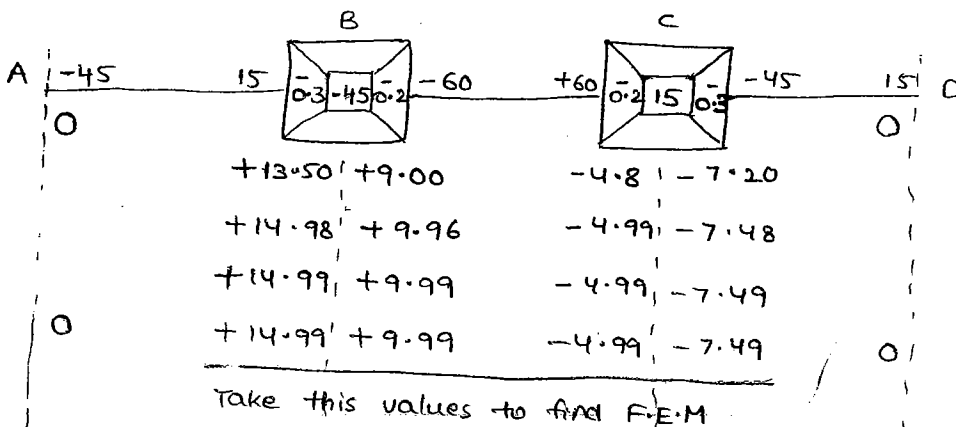 B C
A -45 15 -0.3 -45 -0.2 -60 +60 -0.2 15 -0.3 -45 15 D
0 0
+13.50 +9.00 -4.8 -7.20
+14.98 +9.96 -4.99 -7.48
+14.99 +9.99 -4.99 -7.49
0 +14.99 +9.99 -4.99 -7.49 0
Take this values to find F.E.M